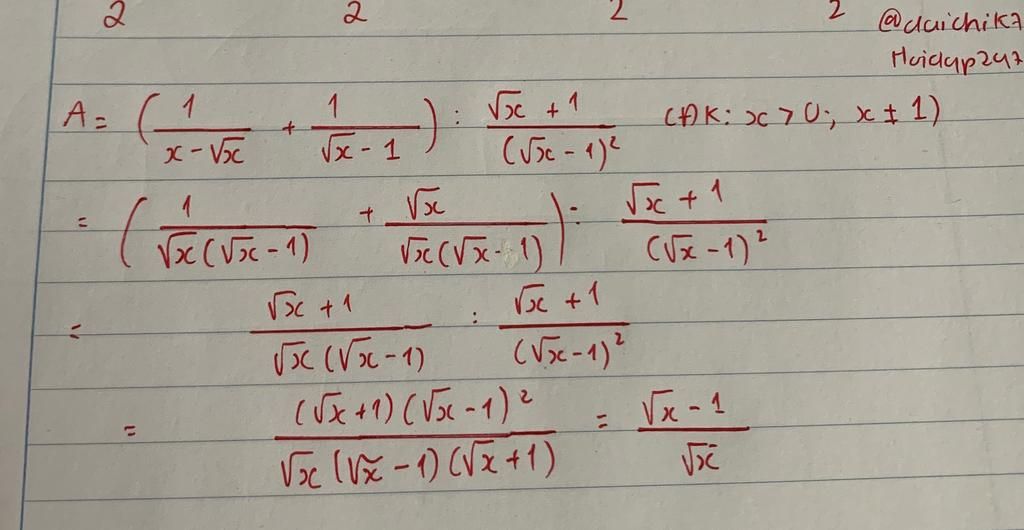 2 2 2 2
@daichika7
A = ( 1/(x - √x) + 1/(√x - 1) ) : (√x + 1)/(√x - 1)² (ĐK: x > 0; x ≠ 1)
= ( 1/(√x(√x - 1)) + √x/(√x(√x - 1)) ) : (√x + 1)/(√x - 1)²
= (√x + 1)/(√x(√x - 1)) : (√x + 1)/(√x - 1)²
= ((√x + 1)(√x - 1)²)/(√x(√x - 1)(√x + 1)) = (√x - 1)/√x